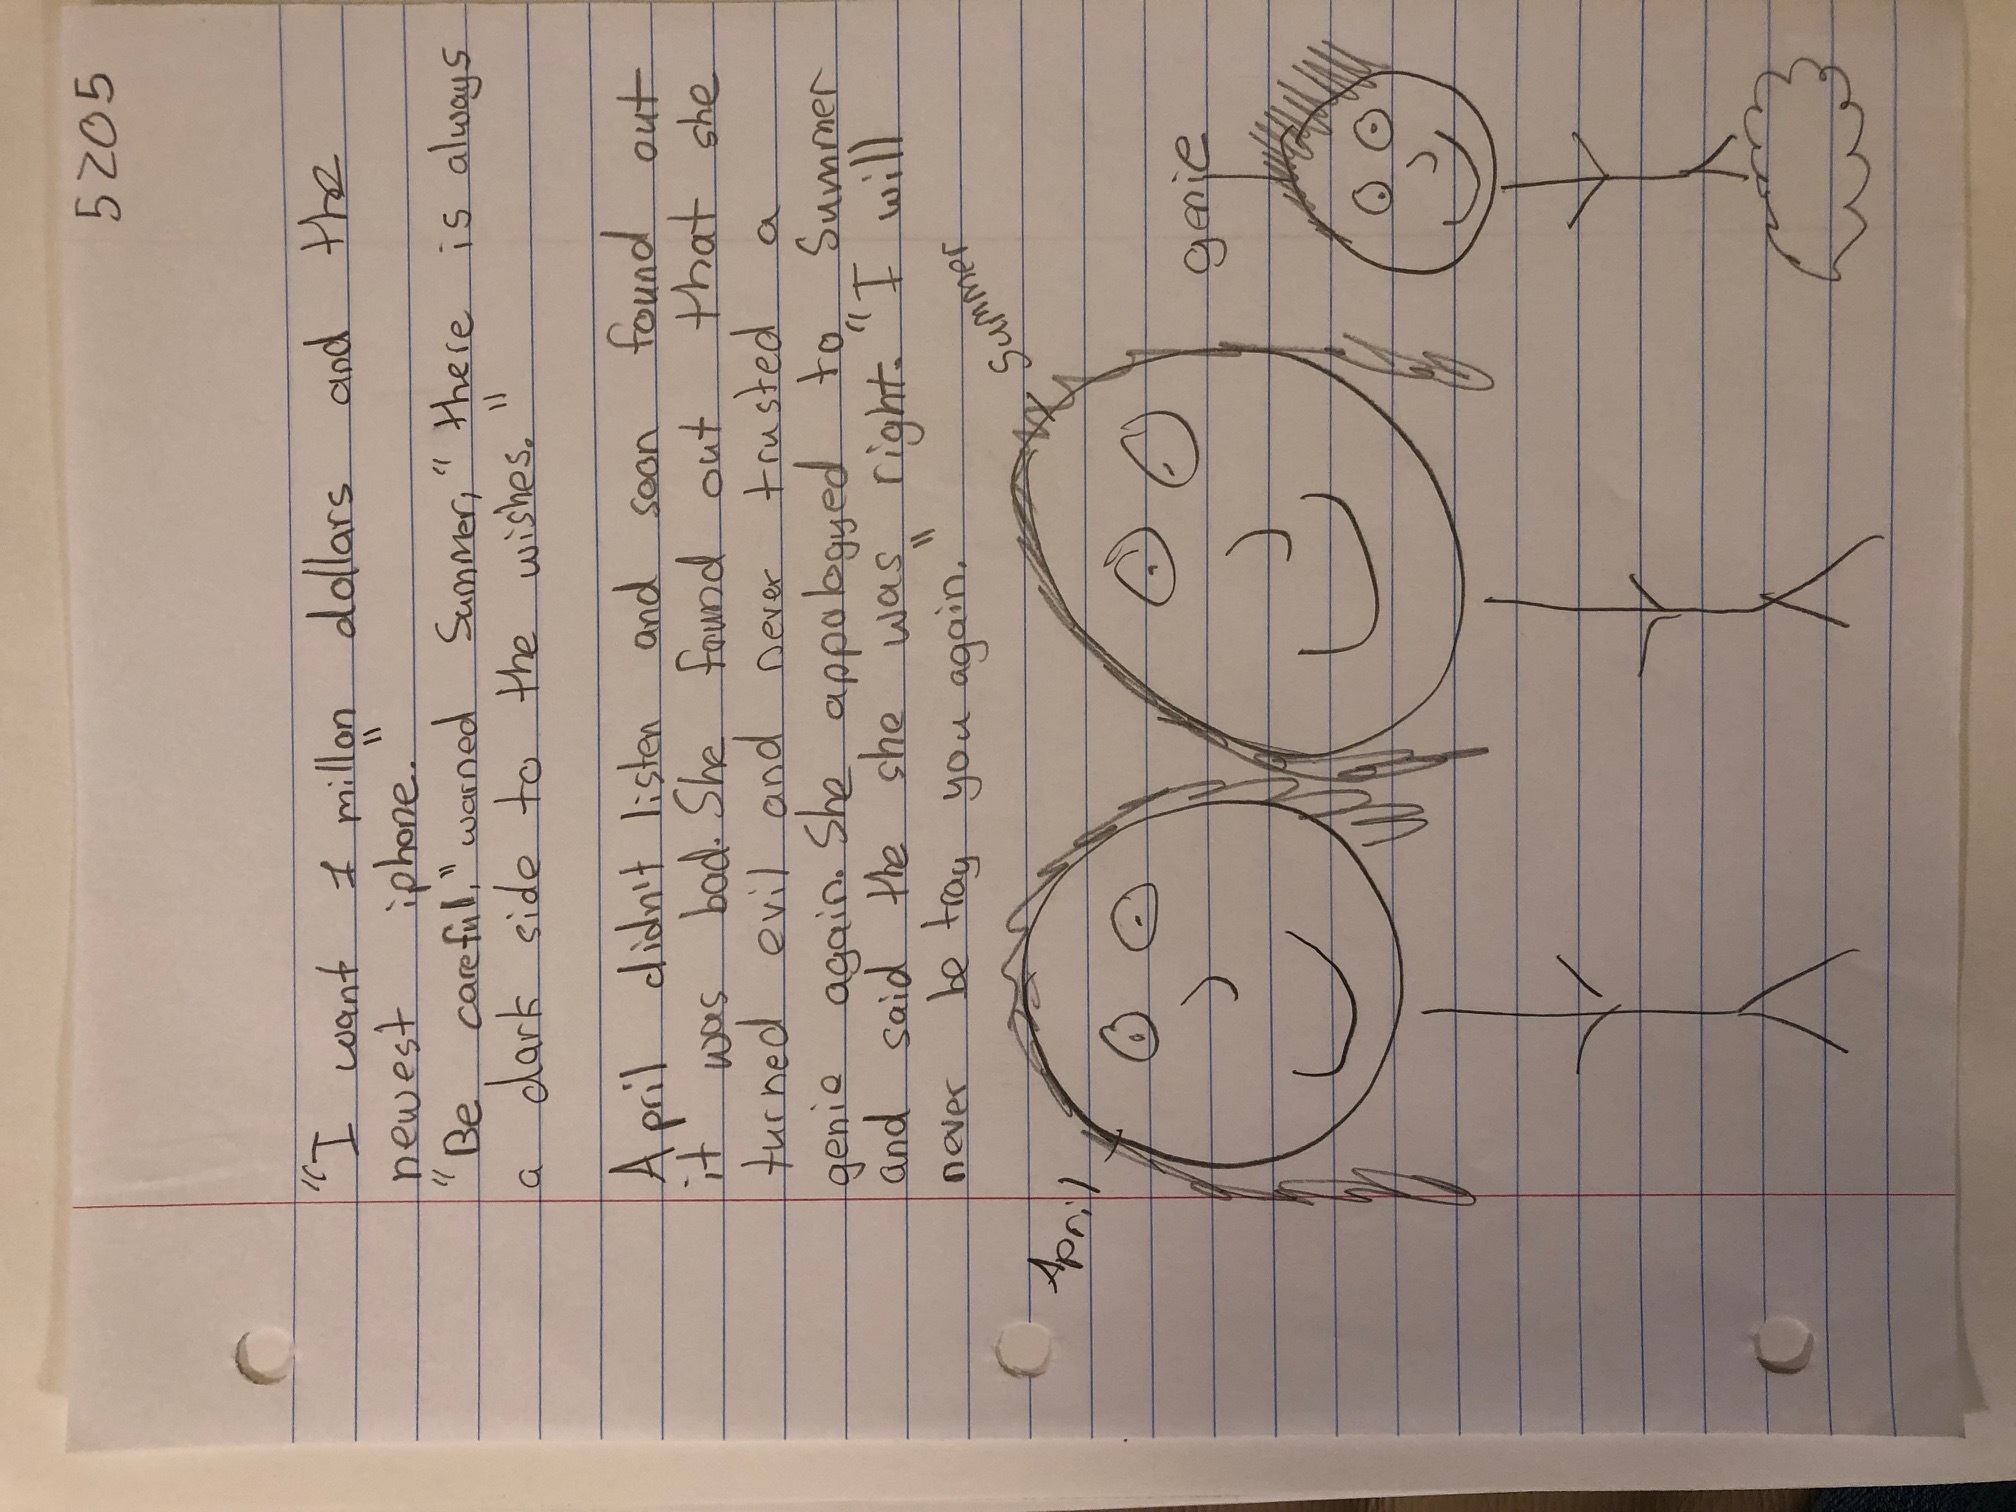 5205
"I want 1 millon dollars and the
newest iphone."
"Be careful," warned Summer, "there is always
a dark side to the wishes."
April didn't listen and soon found out
it was bad. She found out that she
turned evil and never trusted a
genie again. She appologyed to Summer
and said the she was right. "I will
never be tray you again."
Summer
April
genie